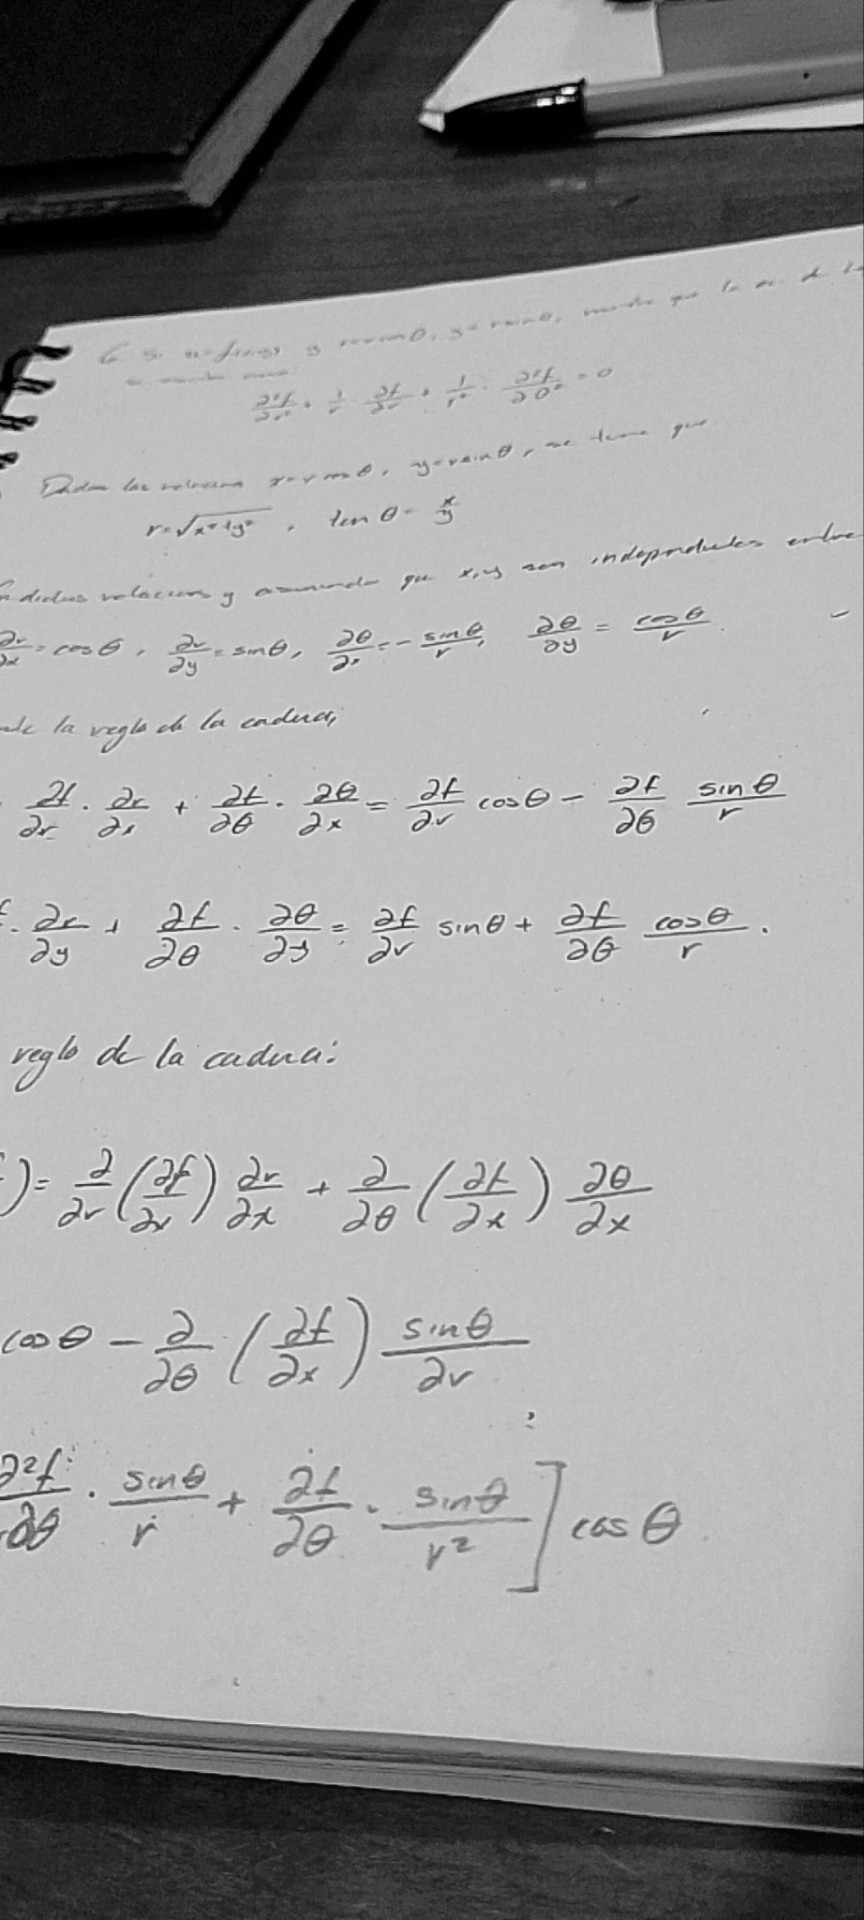 6. Si z=f(x,y) y x=rcosθ, y=rsinθ, muestre que la ec. de
se escribe como:
∂²f/∂r² + 1/r · ∂f/∂r + 1/r² · ∂²f/∂θ² = 0
Dadas las relaciones x=rcosθ, y=rsinθ, se tiene que
r=√(x²+y²), tan θ = x/y
dichas relaciones y asumiendo que x,y son independientes entre
∂r/∂x = cosθ, ∂r/∂y = sinθ, ∂θ/∂x = - sinθ/r, ∂θ/∂y = cosθ/r.
la regla de la cadena,
∂f/∂r · ∂r/∂x + ∂f/∂θ · ∂θ/∂x = ∂f/∂r cosθ - ∂f/∂θ sinθ/r
· ∂r/∂y + ∂f/∂θ · ∂θ/∂y = ∂f/∂r sinθ + ∂f/∂θ cosθ/r.
regla de la cadena:
) = ∂/∂r (∂f/∂r) ∂r/∂x + ∂/∂θ (∂f/∂x) ∂θ/∂x
cosθ - ∂/∂θ (∂f/∂x) sinθ/∂r
∂²f/∂θ · sinθ/r + ∂f/∂θ · sinθ/r² ] cosθ